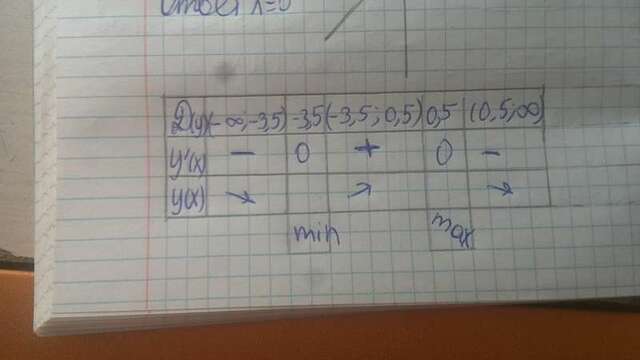 Ответ x=0
D(y) (-∞; -3,5) -3,5 (-3,5; 0,5) 0,5 (0,5; ∞)
y'(x) − 0 + 0 −
y(x) ↘ ↗ ↘
min max